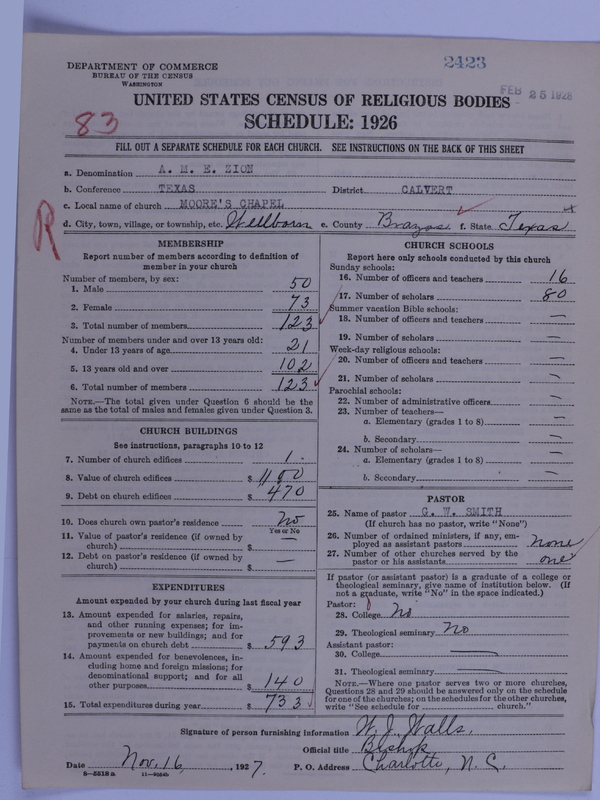 2423
DEPARTMENT OF COMMERCE
BUREAU OF THE CENSUS
WASHINGTON
FEB 25 1928
UNITED STATES CENSUS OF RELIGIOUS BODIES
83
SCHEDULE: 1926
FILL OUT A SEPARATE SCHEDULE FOR EACH CHURCH. SEE INSTRUCTIONS ON THE BACK OF THIS SHEET
a. Denomination A. M. E. ZION
b. Conference TEXAS District CALVERT
c. Local name of church MOORE'S CHAPEL
R
d. City, town, village, or township, etc. Wellborn e. County Brazos f. State Texas
MEMBERSHIP
Report number of members according to definition of
member in your church
Number of members, by sex:
1. Male 50
2. Female 73
3. Total number of members 123
Number of members under and over 13 years old:
4. Under 13 years of age 21
5. 13 years old and over 102
6. Total number of members 123
NOTE.—The total given under Question 6 should be the
same as the total of males and females given under Question 3.
CHURCH BUILDINGS
See instructions, paragraphs 10 to 12
7. Number of church edifices 1
8. Value of church edifices $ 1100
9. Debt on church edifices $ 470
10. Does church own pastor's residence No
Yes or No
11. Value of pastor's residence (if owned by
church) $ —
12. Debt on pastor's residence (if owned by
church) $ —
EXPENDITURES
Amount expended by your church during last fiscal year
13. Amount expended for salaries, repairs,
and other running expenses; for im-
provements or new buildings; and for
payments on church debt $ 593
14. Amount expended for benevolences, in-
cluding home and foreign missions; for
denominational support; and for all
other purposes $ 140
15. Total expenditures during year $ 733
CHURCH SCHOOLS
Report here only schools conducted by this church
Sunday schools:
16. Number of officers and teachers 16
17. Number of scholars 80
Summer vacation Bible schools:
18. Number of officers and teachers —
19. Number of scholars —
Week-day religious schools:
20. Number of officers and teachers —
21. Number of scholars —
Parochial schools:
22. Number of administrative officers —
23. Number of teachers—
a. Elementary (grades 1 to 8) —
b. Secondary —
24. Number of scholars—
a. Elementary (grades 1 to 8) —
b. Secondary —
PASTOR
25. Name of pastor G. W. SMITH
(If church has no pastor, write "None")
26. Number of ordained ministers, if any, em-
ployed as assistant pastors None
27. Number of other churches served by the
pastor or his assistants one
If pastor (or assistant pastor) is a graduate of a college or
theological seminary, give name of institution below. (If
not a graduate, write "No" in the space indicated.)
Pastor:
28. College No
29. Theological seminary No
Assistant pastor:
30. College —
31. Theological seminary —
NOTE.—Where one pastor serves two or more churches,
Questions 28 and 29 should be answered only on the schedule
for one of the churches; on the schedules for the other churches,
write "See schedule for church."
Signature of person furnishing information W. J. Walls,
Official title Bishop
Date Nov. 16, 1927. P. O. Address Charlotte, N. C.
8—5518a 11—9034b